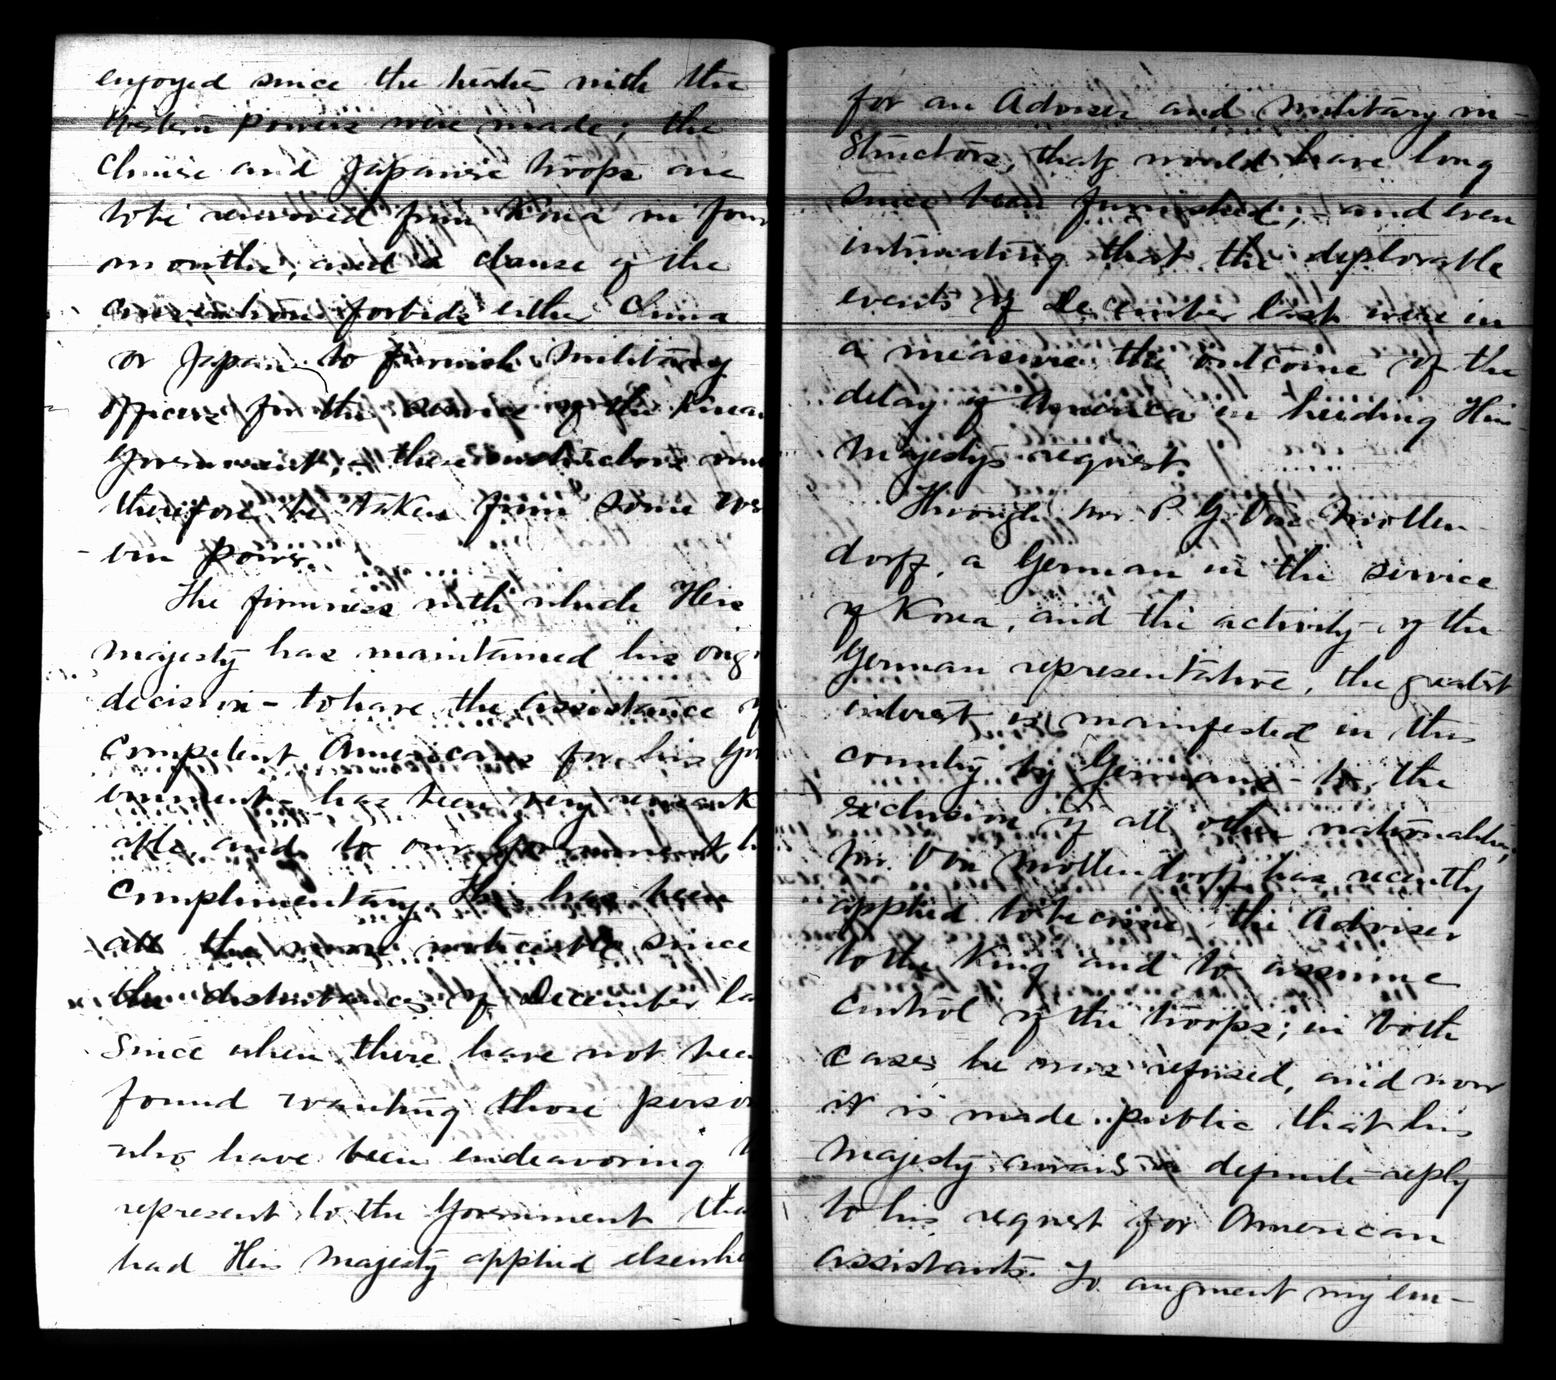 enjoyed since the treaties with the
Western powers were made; the
Chinese and Japanese troops are
to be removed from Korea in four
months, and a clause of the
convention forbids either China
or Japan to furnish military
officers for the service of the Korean
Government, - the instructors must
therefore be taken from some west
ern power.
The firmness with which His
Majesty has maintained his orig
decision - to have the assistance of
competent Americans for his Gov
ernment - has been very remark
able, and to our Government
complimentary. This has been
all the more noticeable since
the disturbances of December la
since when there have not been
found wanting those person
who have been endeavoring
represent to the Government tha
had His Majesty applied elsewhe
for an Adviser and military in-
structors, that would have long
since been furnished; - and even
intimating that the deplorable
events of December last were in
a measure the outcome of the
delay of America in heeding His
Majesty's request.
Through Mr. P. G. Von Mollen-
dorff, a German in the service
of Korea, and the activity of the
German representative, the greatest
interest is manifested in this
country by Germans - to the
exclusion of all other nationalities,
Mr. Von Mollendorff has recently
applied to become the Adviser
to the King and to assume
control of the troops; in both
cases he was refused, and now
it is made public that his
Majesty awaits a definite reply
to his request for American
assistants. To augment my em-